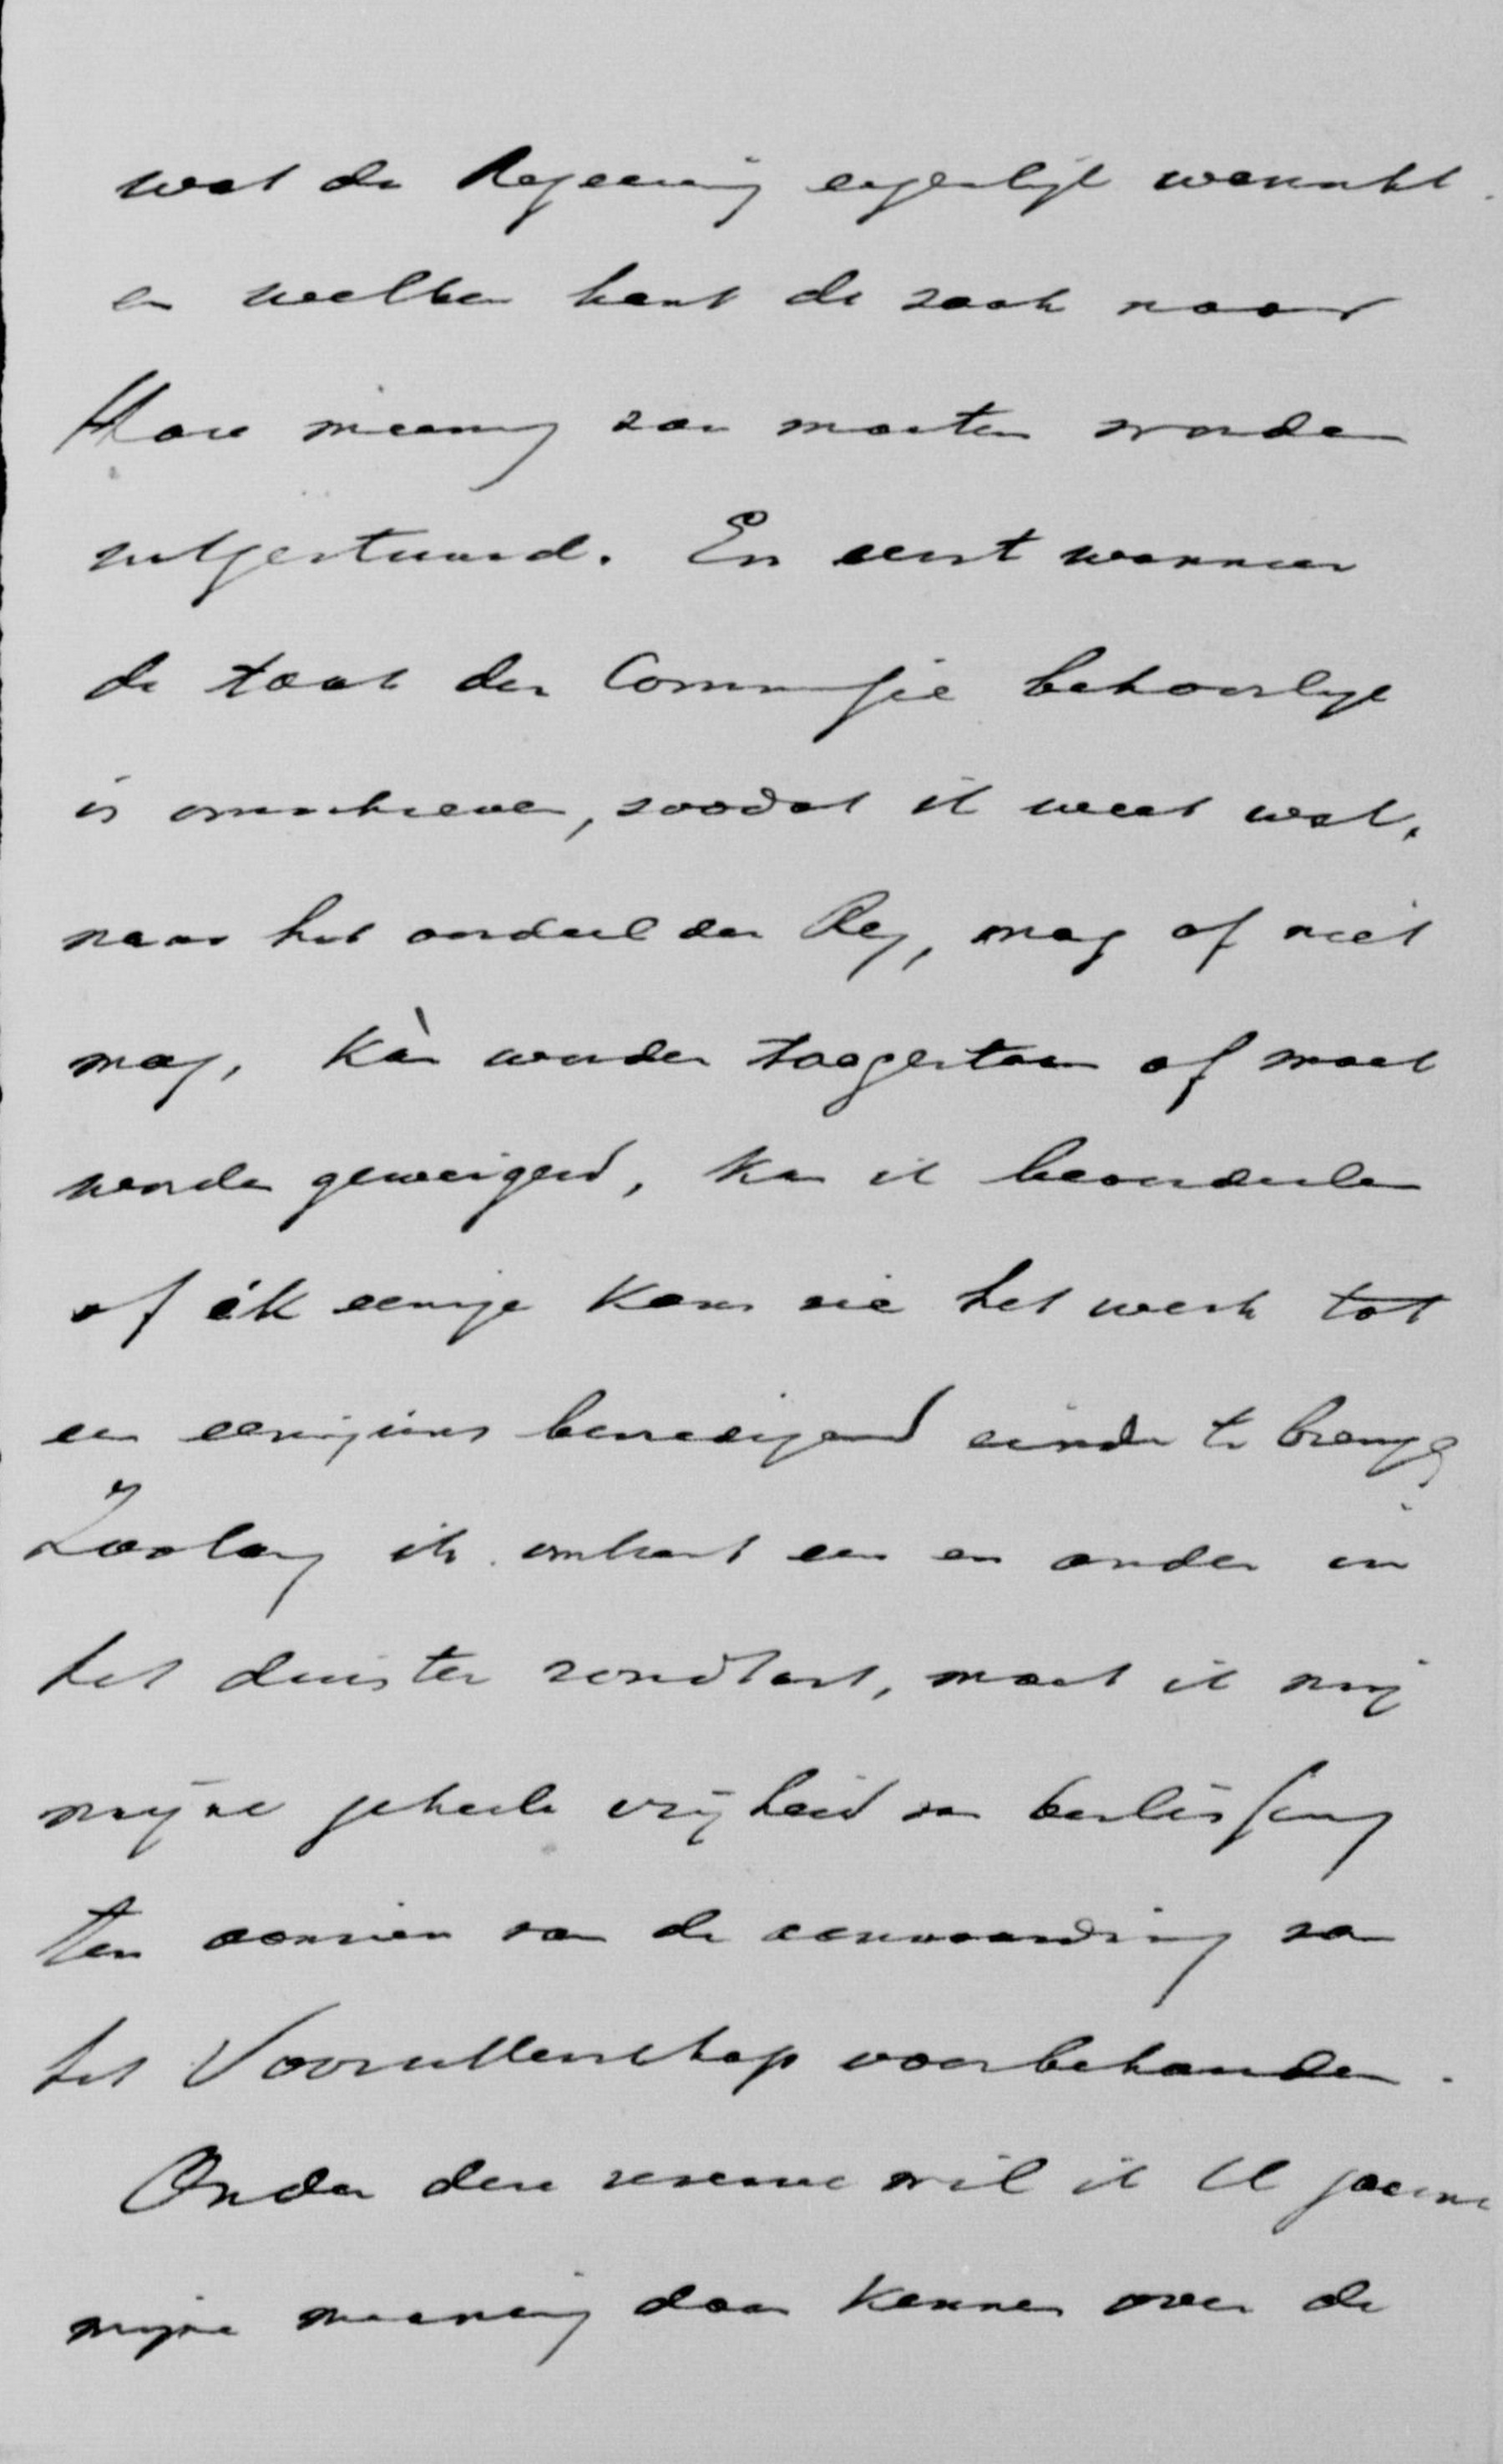 wat de Regeering eigenlijk wenscht
en welken kant de zaak naar
Hare meening zou moeten worden
uitgestuurd. En eerst wanneer
de taak der Commissie behoorlijk
is omschreven, zoodat ik weet wat,
naar het oordeel der Reg, mag of niet
mag, kàn worden toegestaan of moet
worden geweigerd, kan ik beoordeelen
of ik eenige kans zie het werk tot
een eenigszins bevredigend einde te brengen
Zoolang ik omtrent een en ander in
het duister rondtast, moet ik mij
mijne geheele vrijheid van beslissing
ten aanzien van de aanvaarding van
het Voorzitterschap voorbehouden.
Onder deze reserve wil ik U gaarne
mijne meening doen kennen over de